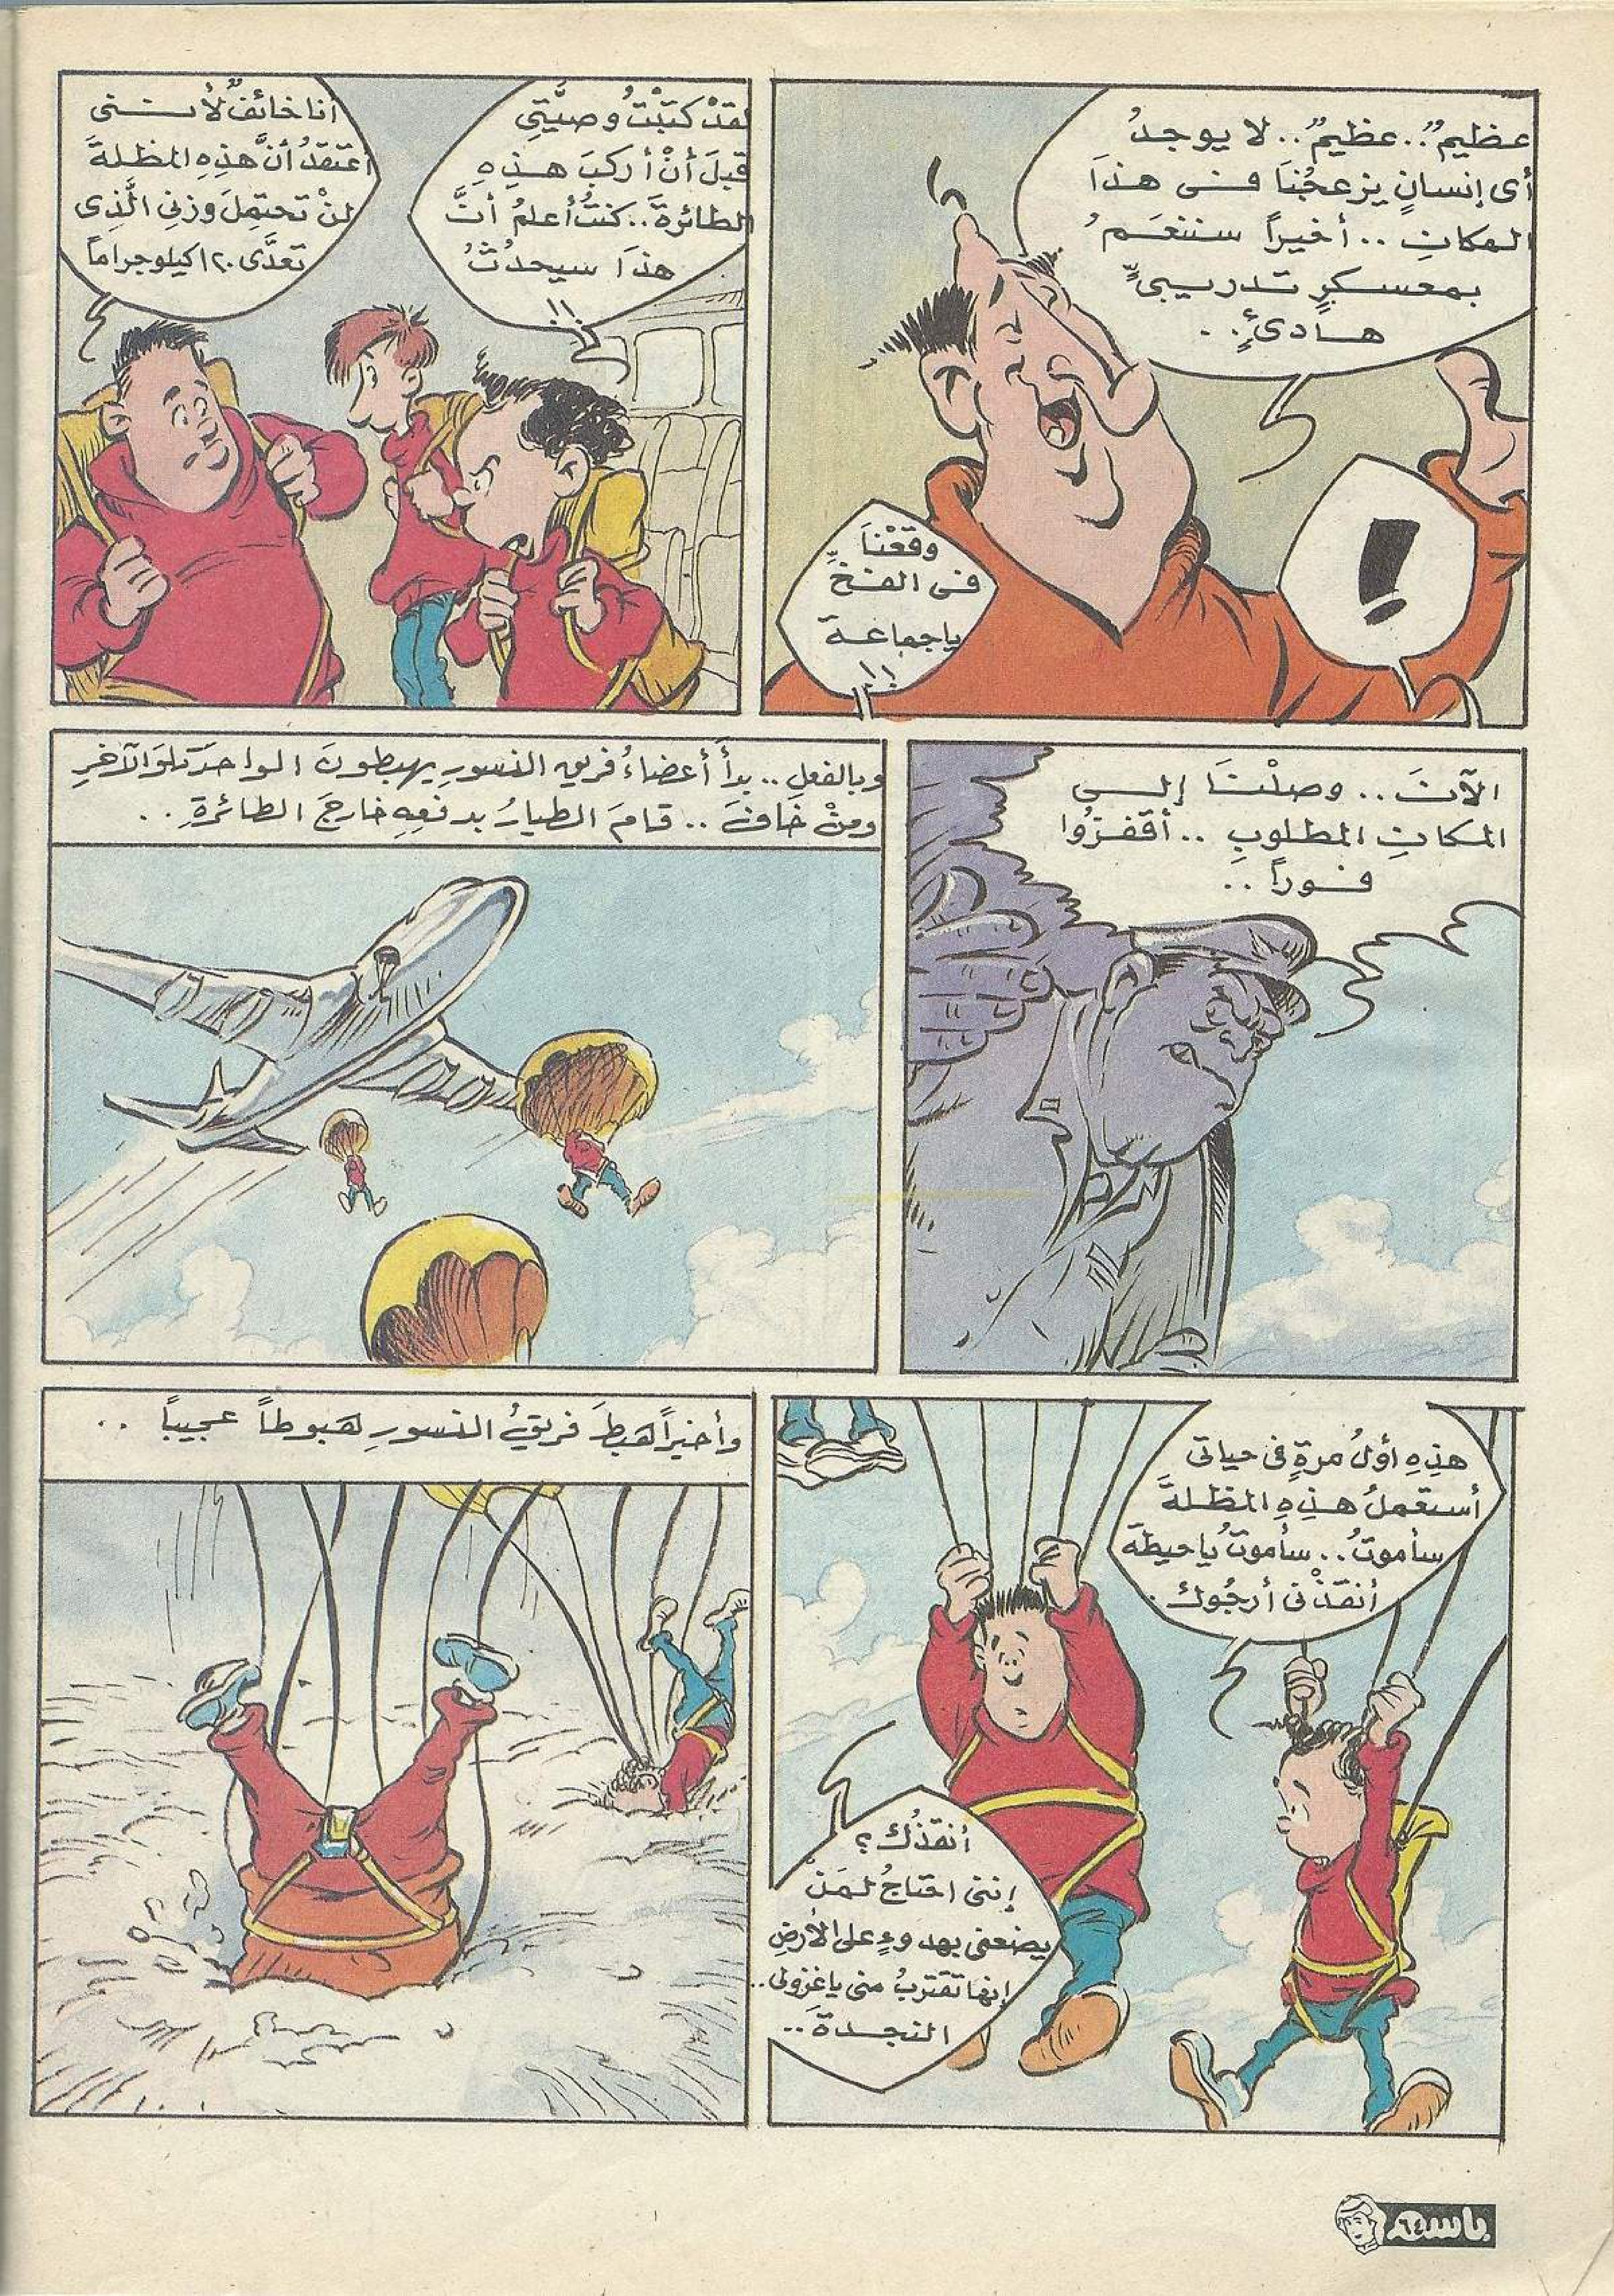 عظيمٌ..عظيمٌ.. لا يوجدُ
أى إنسانٍ يزعجُنا فى هذا
المكانِ .. أخيراً سننعَمُ
بمعسكرٍ تدريبىٍّ
هادىءٍ..
!
وقعْنَا
فى الفخِّ
ياجماعة
!!
لقدْ كتبْتُ وصيَّتِى
قبلَ أنْ أركبَ هذِهِ
الطائرةَ..كنتُ أعلمُ أنَّ
هذَا سيحدُثُ
!!
أنا خائفٌ لأننى
أعتقدُ أنَّ هذِهِ المظلةَ
لنْ تحتمِلَ وزنِى الَّذِى
تعدَّى ١٢٠كيلوجراماً
الآنَ.. وصلْنَا إلى
المكانِ المطلوبِ ..أقفزُوا
فوراً..
وبالفعلِ .. بدأَ أعضاءُ فريقِ النسورِ يهبطونَ الواحدَ تلوَ الآخرِ
ومنْ خَافَ .. قامَ الطيارُ بدفعِهِ خارجَ الطائرةِ..
هذِهِ أولُ مرةٍ فى حياتى
أستعملُ هذِهِ المظلةَ
سأموتُ..سأموتُ ياحيطة
أنقذْنى أرجُوك.
أنقذُك؟
إننى احتاجُ لمَنْ
يضعنى بهدوءٍ على الأرضِ
إنها تقتربُ منى ياغزولى..
النجدةَ..
وأخيراً هبطَ فريقُ النسورِ هبوطاً عجيباً ..
باسم
٦٤